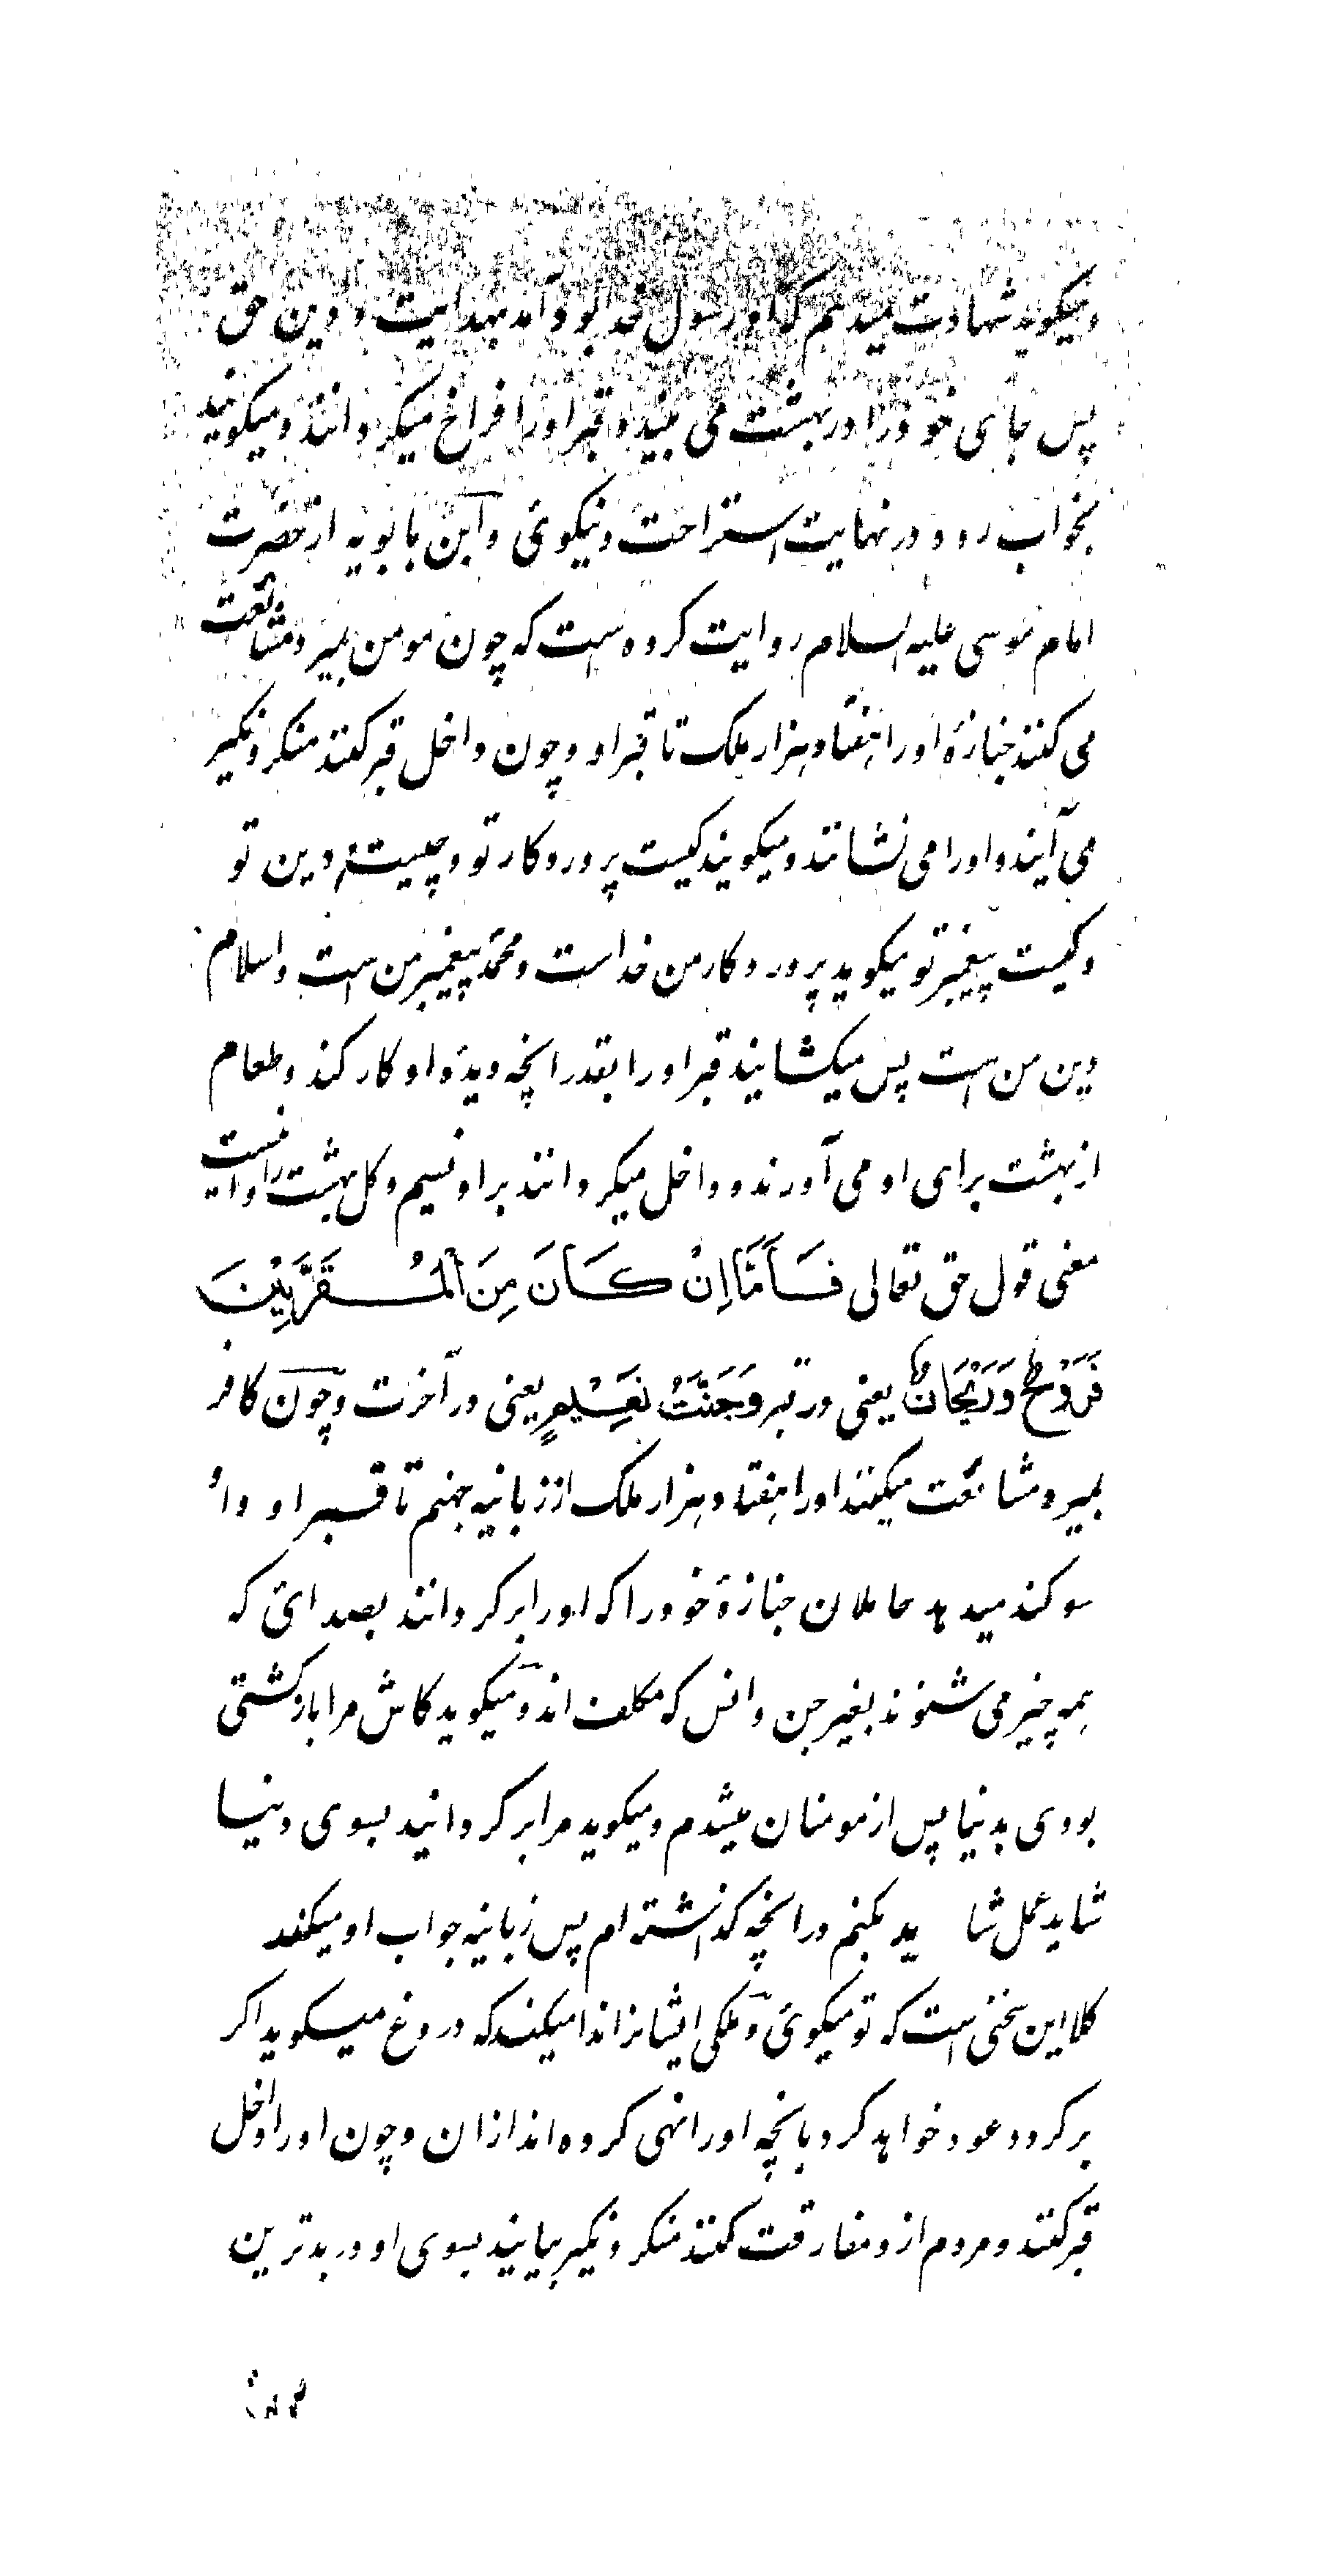 ومیکوید شهادت میدهم که او رسول خدا بود آمد بهدایت و دین حق
پس جای خود را در بهشت می بیند و قبر او را فراخ میکردانند و میکویند
بخواب رو در نهایت استراحت و نیکوئی و ابن بابویه از حضرت
امام موسی علیه السلام روایت کرده است که چون مومن بمیرد مشایعت
می کنند جنازهٔ او را هفتاد هزار ملک تا قبر او و چون داخل قبر کنند منکر و نکیر
می آیند و او را می نشانند و میکویند کیست پروردکار تو و چیست دین تو
و کیست پیغمبر تو میکوید پروردکار من خداست و محمد پیغمبر من است و اسلام
دین من است پس میکشایند قبر او را بقدر انچه دیدهٔ او کار کند و طعام
از بهشت برای او می آورند و داخل میکردانند بر او نسیم و کل بهشت را و اینست
معنی قول حق تعالی فَاَمَّا اِنْ كَانَ مِنَ الْمُقَرَّبِيْنَ
فَرَوْحٌ وَرَيْحَانٌ یعنی در قبر وَجَنَّتُ نَعِيْمٍ یعنی در آخرت و چون کافر
بمیرد مشائعت میکنند او را هفتاد هزار ملک از زبانیه جهنم تا قبر او و او
سوکند میدهد حاملان جنازهٔ خود را که او را برکردانند بصدائی که
همه چیز می شنوند بغیر جن و انس که مکلف اند و میکوید کاش مرا بازکشتی
بودی بدنیا پس از مومنان میشدم و میکوید مرا برکردانید بسوی دنیا
شاید عمل شا ید بکنم در انچه کذاشته ام پس زبانیه جواب او میکند
کلا این سخنی است که تو میکوئی و ملکی ایشانرا ندا میکند که دروغ میکوید اکر
برکردد عود خواهد کرد بانچه او را نهی کرده اند ازان و چون او را داخل
قبر کنند و مردم از و مفارقت کنند منکر و نکیر بیایند بسوی او در بدترین